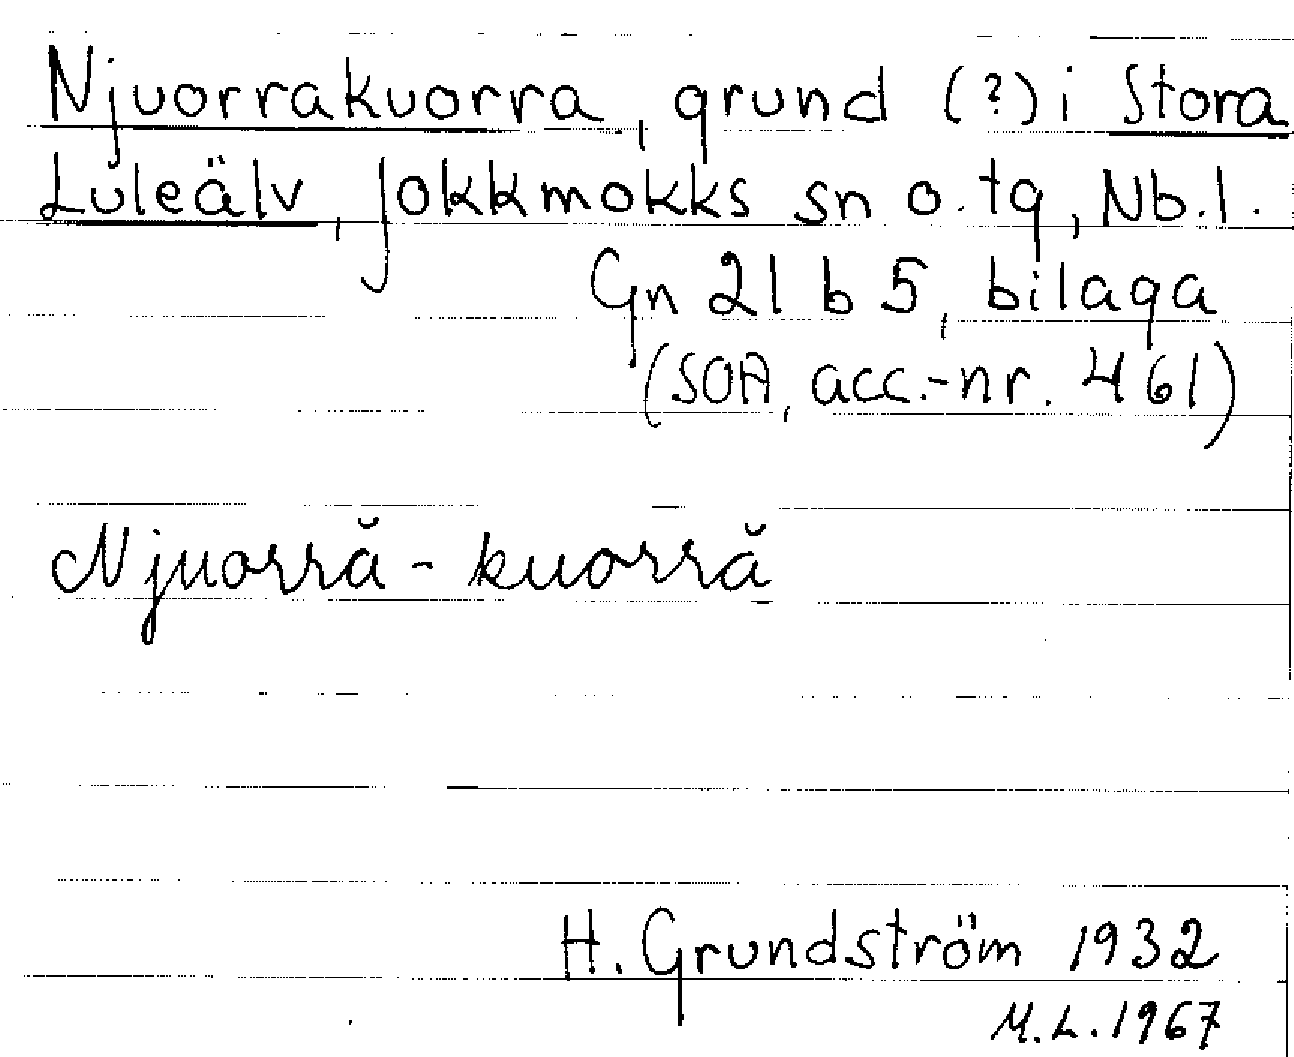 Njuorrakuorra, grund (?) i Stora
Luleälv, Jokkmokks sn o. tg, Nb.l.
Gn 21 b 5, bilaga
(SOA, acc.-nr. 461)
Njuorră-kuorră
H. Grundström 1932
M.L. 1967